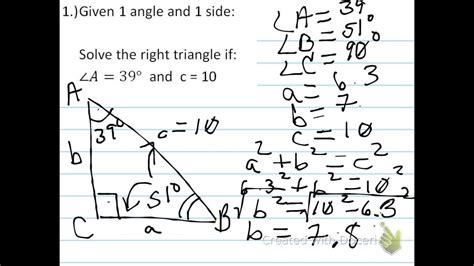 1.)Given 1 angle and 1 side:
Solve the right triangle if:
∠A = 39° and c = 10
∠A = 39°
∠B = 51°
∠C = 90°
a = 6.3
b = 7.
c = 10
a² + b² = c²
6.3² + b² = 10²
√b² = √10² - 6.3²
b = 7.8
A
39°
c = 10
b
51°
C
a
B
Created with Doceri